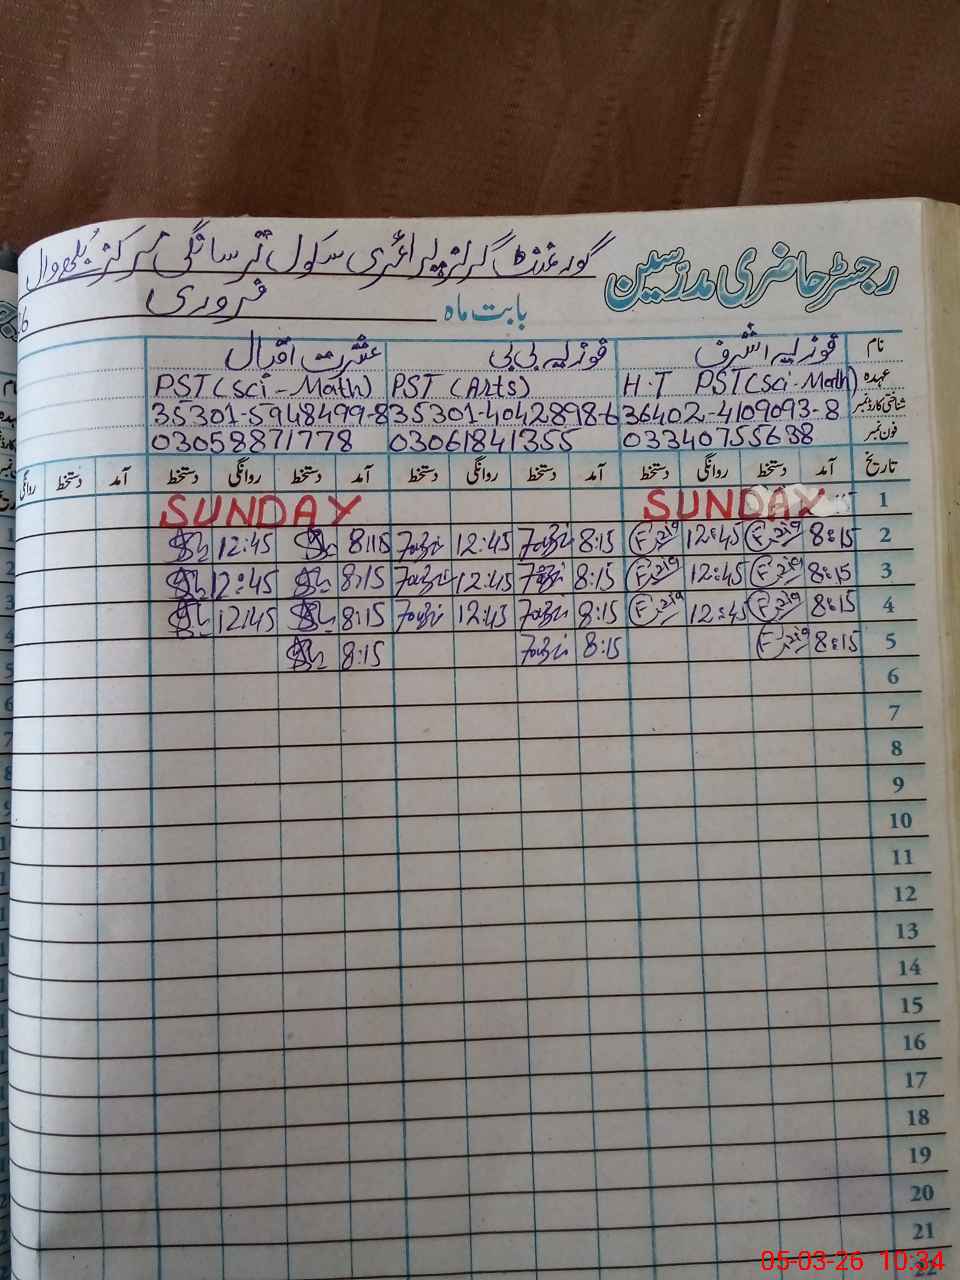 رجسٹر حاضری مدرسین گورنمنٹ گرلز پرائمری سکول ترسانگی مرکز
بابت ماہ فروری
نام فوزیہ اشرف فوزیہ بی بی عشرت اقبال
عہدہ H.T PST(Sci-Math) PST (Arts) PST(Sci-Math)
شناختی کارڈ نمبر 36402-4109093-8 35301-4042898-6 35301-5948499-8
فون نمبر 03340755638 03061841355 03058871778
تاریخ آمد دستخط روانگی دستخط آمد دستخط روانگی دستخط آمد دستخط روانگی دستخط آمد دستخط روانگی
1 SUNDAY SUNDAY
2 8:15 12:45 8:15 12:45 8:15 12:45
3 8:15 12:45 8:15 12:45 8:15 12:45
4 8:15 12:45 8:15 12:45 8:15 12:45
5 8:15 8:15 8:15
6
7
8
9
10
11
12
13
14
15
16
17
18
19
20
21
22
05-03-26 10:34